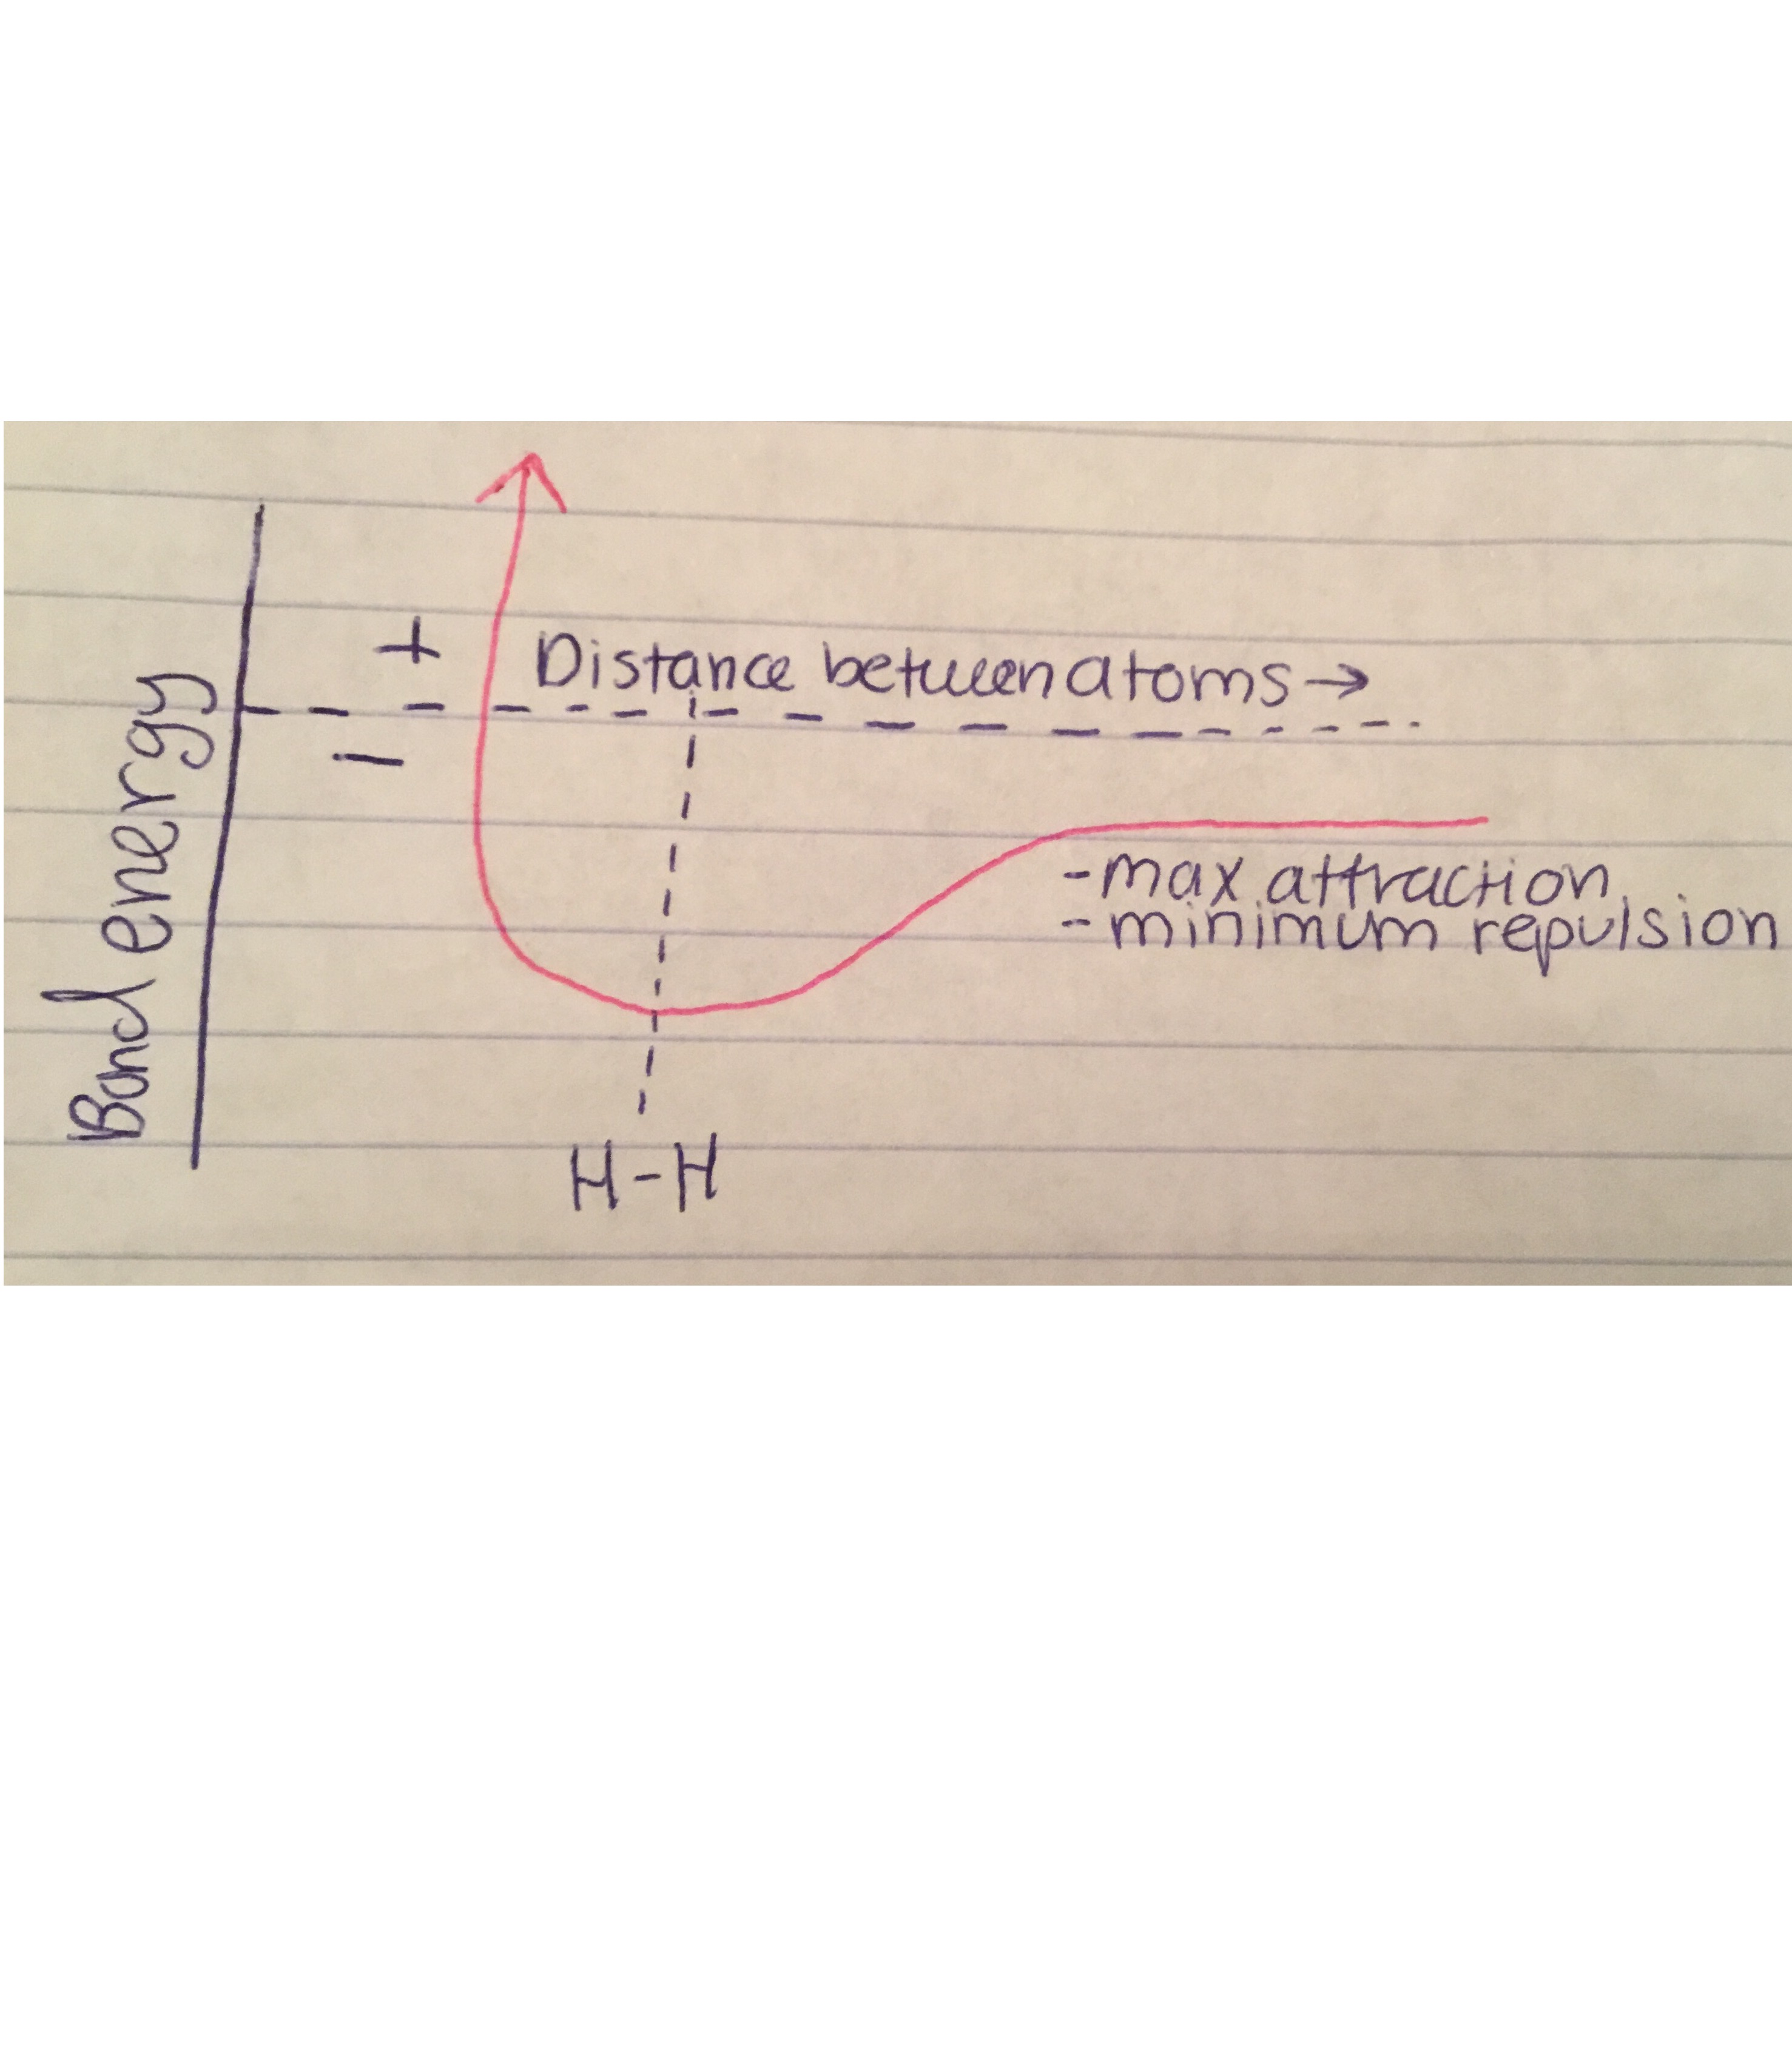 Bond energy
+
Distance between atoms →
-
- max attraction
- minimum repulsion
H-H